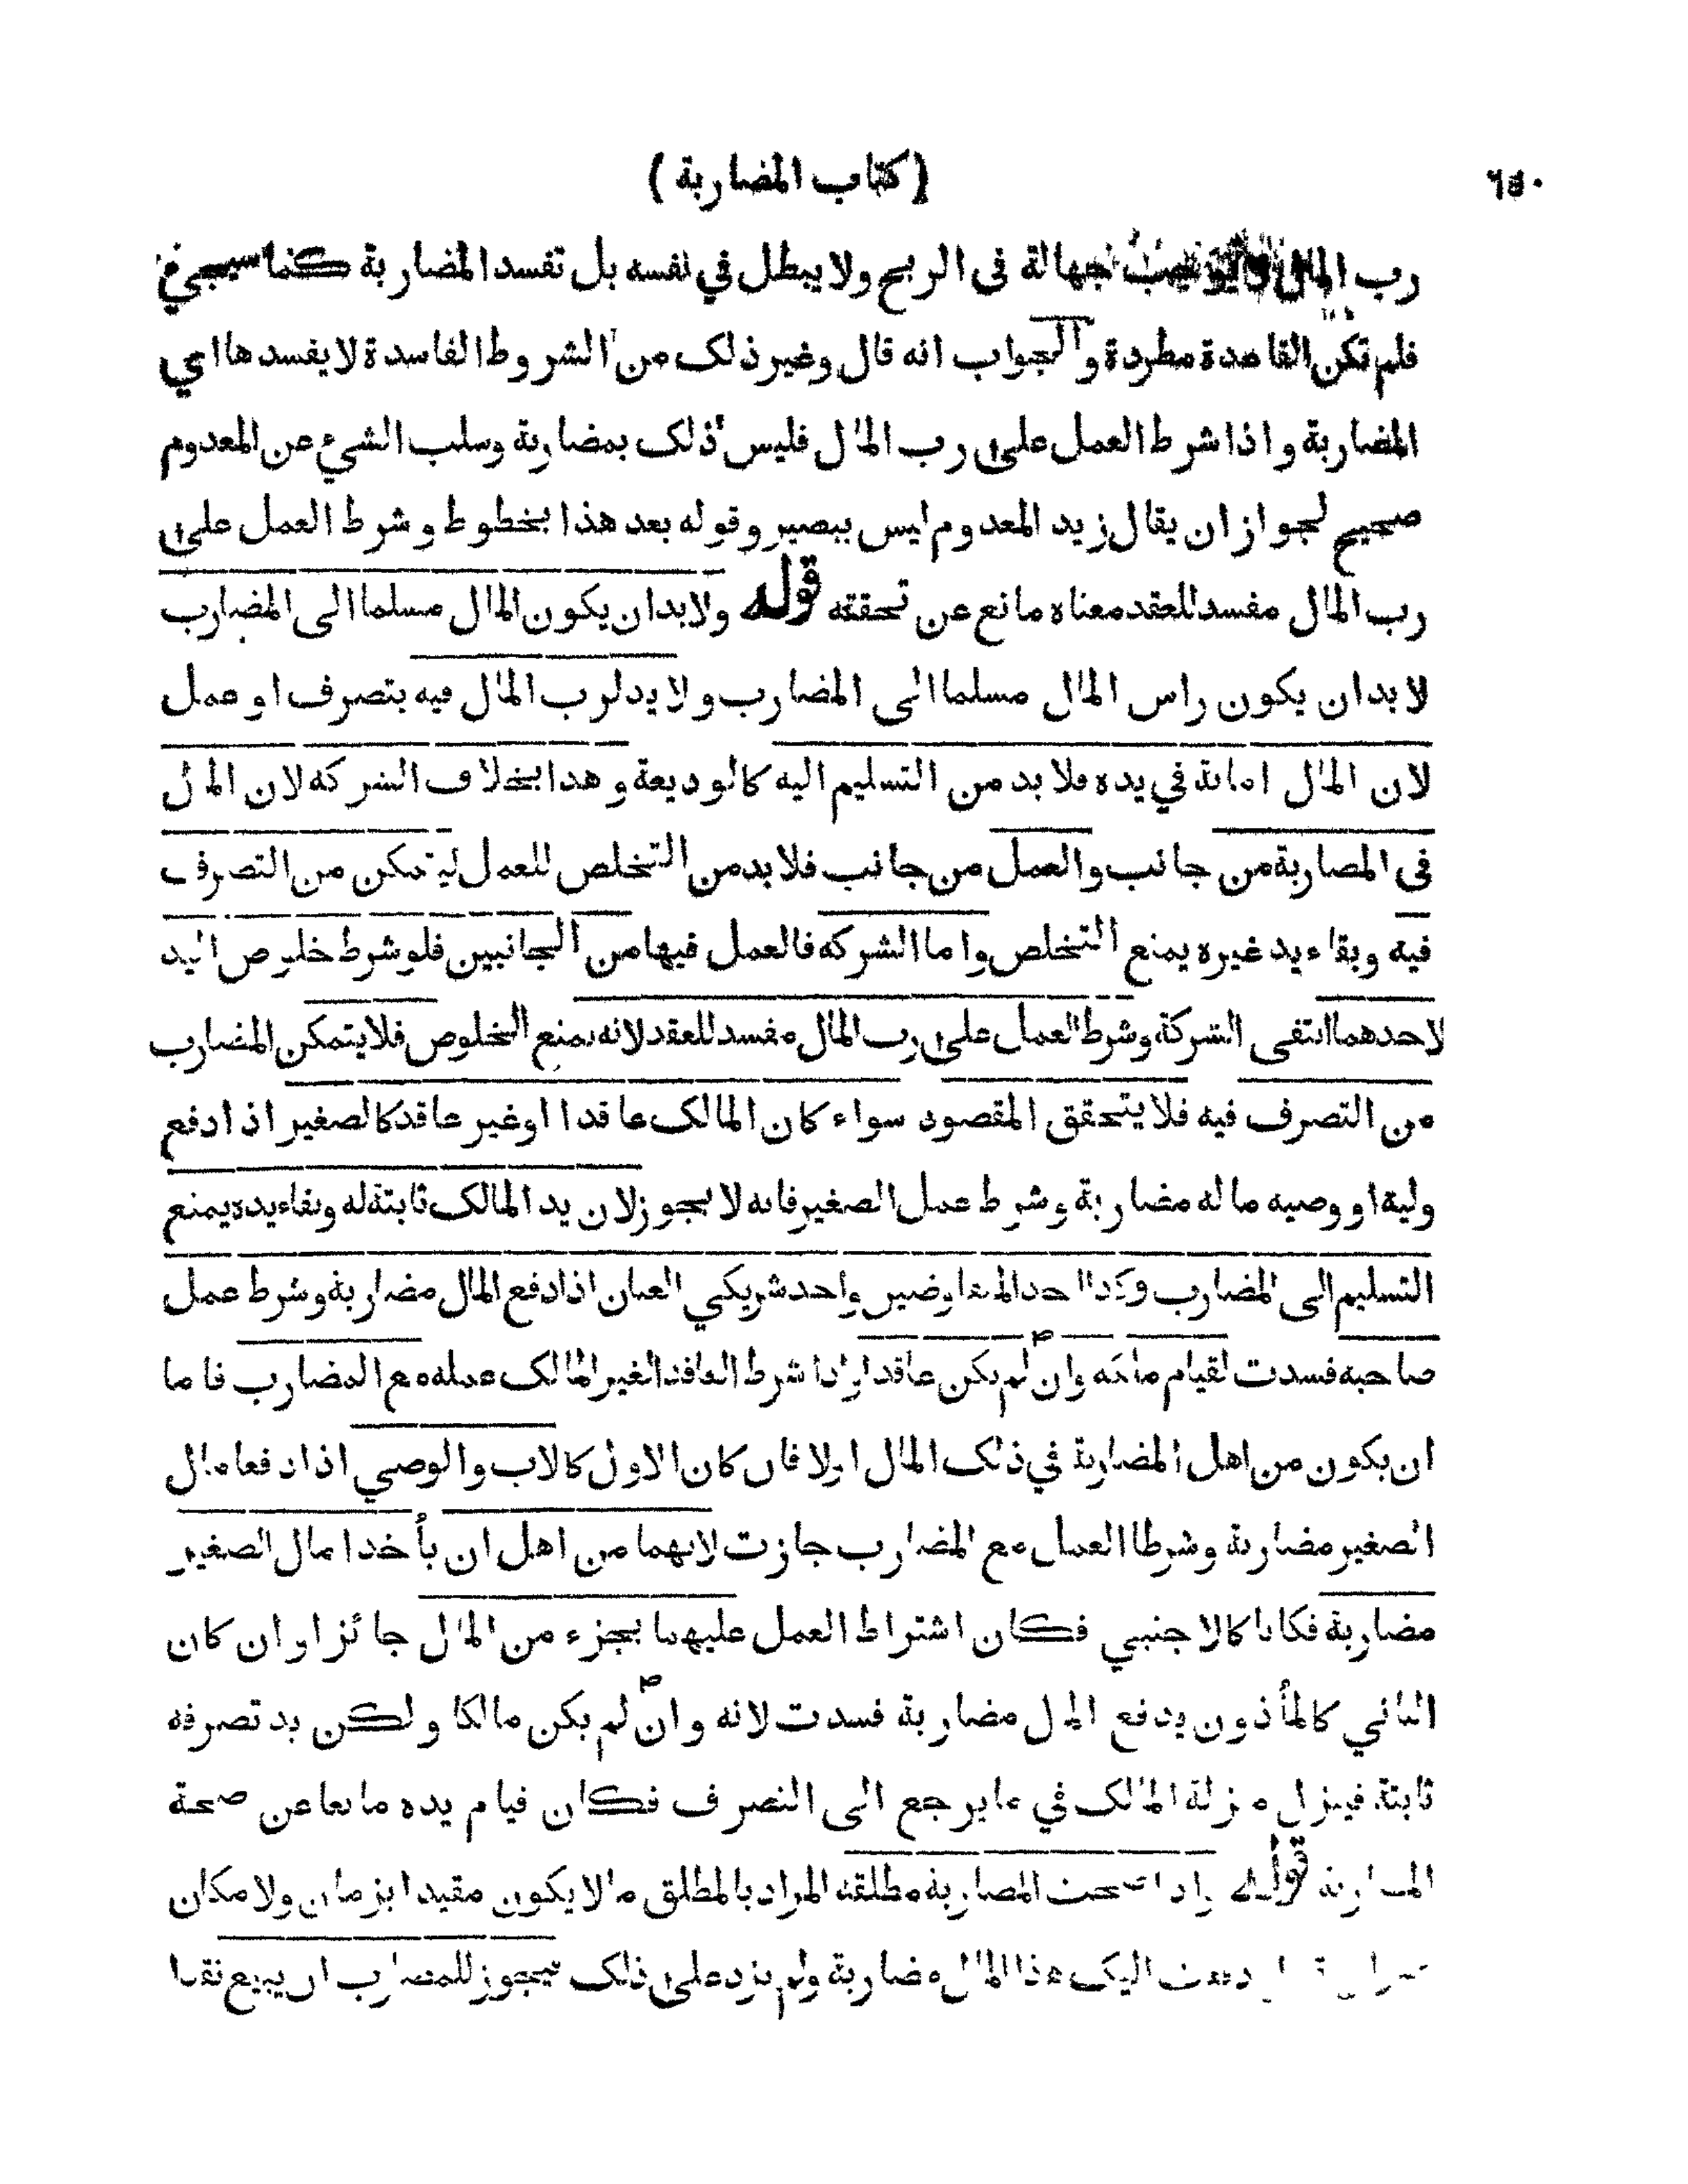 (كتاب المضاربة)
رب المال جهالة فى الربح ولا يبطل في نفسه بل تفسد المضاربة كما سيجيء
فلم تكن القاعدة مطردة والجواب انه قال وغير ذلك من الشروط الفاسدة لا يفسدها اي
المضاربة واذا شرط العمل على رب المال فليس ذلك بمضاربة وسلب الشيء عن المعدوم
صحيح لجواز ان يقال زيد المعدوم ليس ببصير وقوله بعد هذا بخطوط وشرط العمل على
رب المال مفسد للعقد معناه مانع عن تحققته قوله ولا بدان يكون المال مسلما الى المضارب
لا بدان يكون راس المال مسلما الى المضارب ولا يد لرب المال فيه بتصرف او عمل
لان المال امانة في يده فلا بد من التسليم اليه كالوديعة وهذا بخلاف الشركه لان المال
فى المضاربة من جانب والعمل من جانب فلا بد من التخلص للعمل ليتمكن من التصرف
فيه وبقاء يد غيره يمنع التخلص واما الشركه فالعمل فيها من الجانبين فلو شرط خلوص اليد
لاحدهما انتفى الشركة وشرط العمل على رب المال مفسد للعقد لانه يمنع الخلوص فلا يتمكن المضارب
من التصرف فيه فلا يتحقق المقصود سواء كان المالك عاقدا او غير عاقد كالصغير اذا دفع
وليه او وصيه ماله مضاربة وشرط عمل الصغير فانه لا يجوز لان يد المالك ثابتة له وبقاء يده يمنع
التسليم الى المضارب وكذا احد المتفاوضين واحد شريكي العنان اذا دفع المال مضاربة وشرط عمل
صاحبه فسدت لقيام ملكه وان لم يكن عاقدا واذا شرط العاقد الغير المالك عمله مع المضارب فاما
ان يكون من اهل المضاربة في ذلك المال اولا فان كان الاول كالاب والوصي اذا دفعا مال
الصغير مضاربة وشرطا العمل مع المضارب جازت لانهما من اهل ان يأخذا مال الصغير
مضاربة فكانا كالاجنبي فكان اشتراط العمل عليهما بجزء من المال جائزا وان كان
الثاني كالمأذون يدفع المال مضاربة فسدت لانه وان لم يكن مالكا ولكن يد تصرفه
ثابتة فينزل منزلة المالك في ما يرجع الى التصرف فكان قيام يده مانعا عن صحة
المضاربة قوله واذا صحت المضاربة مطلقه المراد بالمطلق مالا يكون مقيدا بزمان ولا مكان
دفعت اليك هذا المال مضاربة ولم يزد على ذلك فيجوز للمضارب ان يبيع نقدا